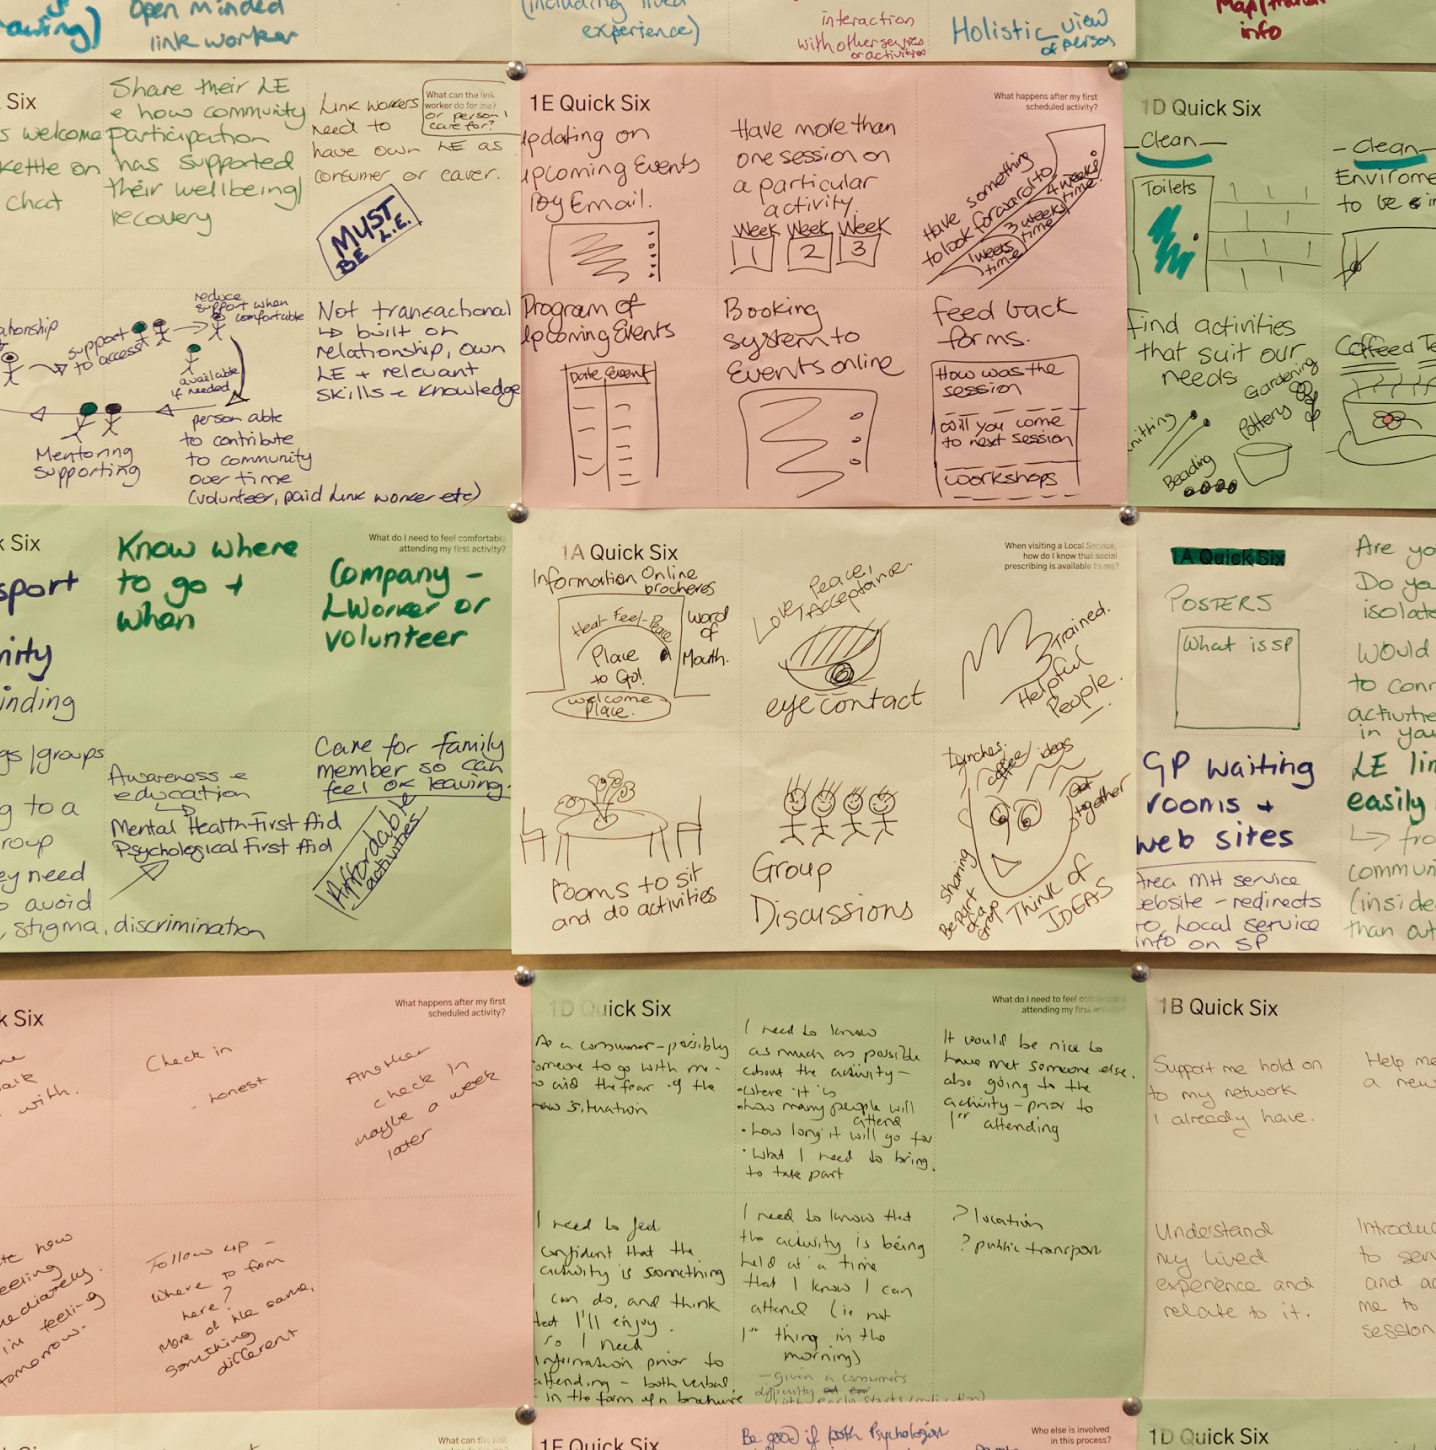 Open minded
link worker
(including lived
experience)
interaction
with other services
or activities
Holistic view
of person
info
Six
Share their LE
e how community
participation
has supported
their wellbeing/
recovery
s welcome
kettle on
chat
Link workers
need to
have own LE as
consumer or carer.
What can the link
worker do for me?
or person I
care for?
MUST
BE L.E.
support
to access
reduce
support when
comfortable
available
if needed
Mentoring
supporting
person able
to contribute
to community
over time
(volunteer, paid Link worker etc)
Not transactional
↳ built on
relationship, own
LE + relevant
skills e knowledge
1E Quick Six
What happens after my first
scheduled activity?
updating on
upcoming Events
By Email.
Have more than
one session on
a particular
activity.
Week Week Week
1 2 3
Have something
to look forward to
1 weeks time
3 weeks time
4 weeks time.
Program of
Upcoming Events
Date Event
Booking
system to
Events online
feed back
forms.
How was the
session
will you come
to next session
workshops
1D Quick Six
Clean
Toilets
Clean
to be
Find activities
that suit our
needs
Gardening
Pottery
Knitting
Beading
Six
What do I need to feel comfortable
attending my first activity?
Know where
to go +
when
Company -
LWorker or
volunteer
Awareness e
education
Mental Health-First Aid
Psychological First Aid
stigma, discrimination
Care for family
member so can
feel ok leaving.
Affordable
activities
1A Quick Six
When visiting a Local Service,
how do I know that social
prescribing is available to me?
Information Online
brocheres
Heal-Feel-Peace
Place
to Go!
welcome
Place.
Word
of
Mouth.
Love, Peace,
Acceptance.
eye contact
Trained.
Helpful
People.
rooms to sit
and do activities
Group
Discussions
Lunches.
coffee
ideas
Get
together
sharing
Be part
of a
Group
Think of
IDEAS
1A Quick Six
POSTERS
What is SP
GP waiting
rooms +
web sites
Area MH service
website - redirects
to Local service
info on SP
Are you
Do you
Would
to
in your
LE
easily
than
Six
What happens after my first
scheduled activity?
with.
Check in
- honest
Another
check in
maybe a week
later
how
feeling
tomorrow.
Follow up -
where to from
here?
More of the same,
something
different
1D Quick Six
What do I need to feel comfortable
attending my first activity?
As a consumer - possibly
someone to go with me -
to aid the fear of the
new situation
I need to know
as much as possible
about the activity -
• where it is
• how many people will
attend
• how long it will go for
• what I need to bring
to take part
It would be nice to
have met someone else.
also going to the
activity - prior to
1st attending
I need to feel
confident that the
activity is something
I can do, and think
that I'll enjoy.
so I need
information prior to
attending - both verbal
- in the form of a brochure
I need to know that
the activity is being
held at a time
that I know I can
attend (ie not
1st thing in the
morning)
- given a consumers
difficulty
with early starts (medication)
? location
? public transport
1B Quick Six
Support me hold on
to my network
I already have.
Help me
a new
Understand
my lived
experience and
relate to it.
to
and
me to
session
What can the link
1E Quick Six
Be good if both Psychologist
Who else is involved
in this process?
1D Quick Six